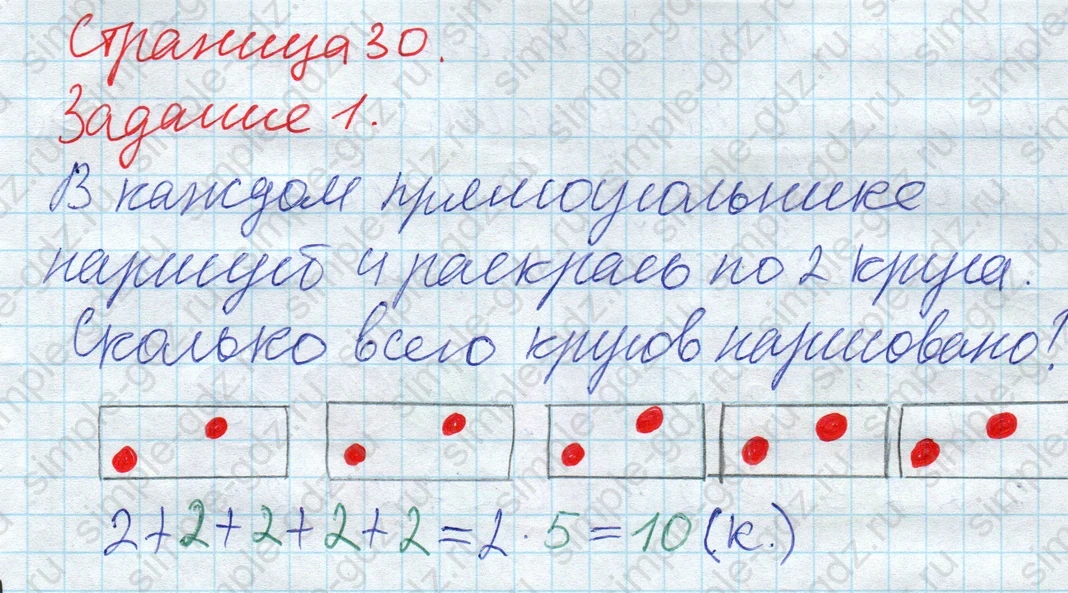 Страница 30.
Задание 1.
В каждом прямоугольнике
нарисуй и раскрась по 2 круга.
Сколько всего кругов нарисовано?
2+2+2+2+2=2·5=10(к.)
simple-gdz.ru